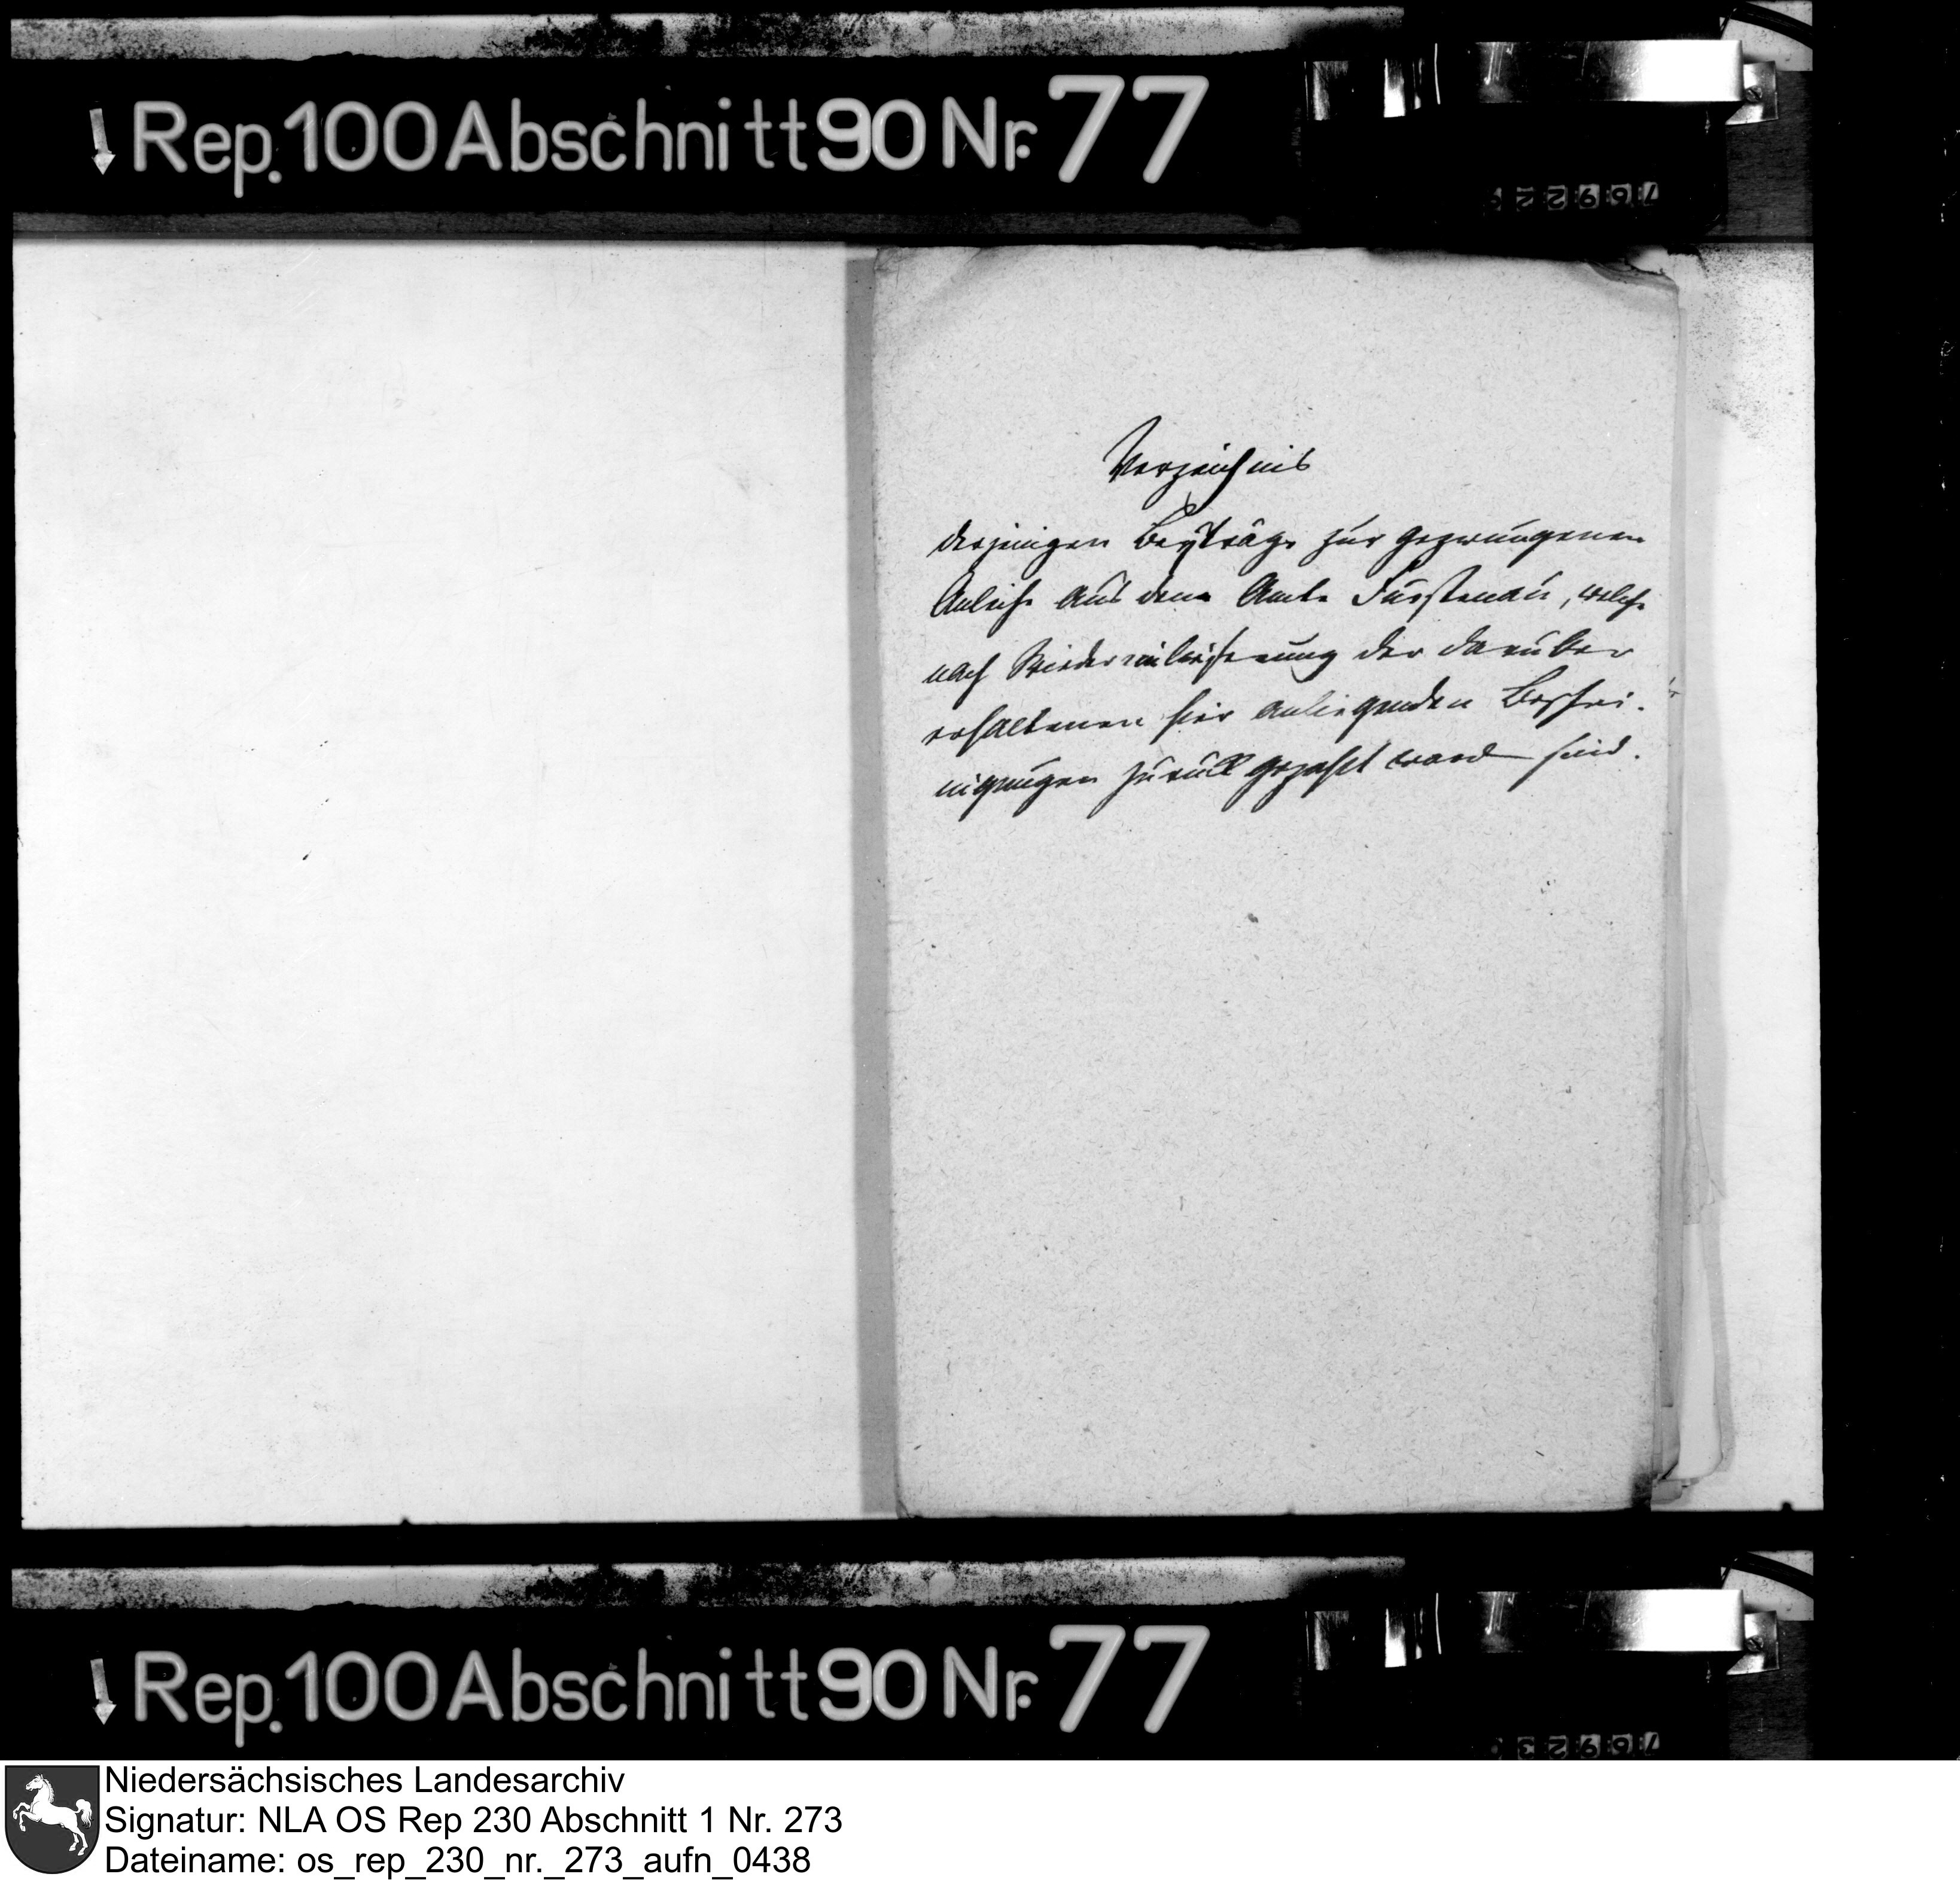 Rep. 100 Abschnitt 90 Nr. 77
Verzeichnis
derjenigen Beyträge zur gezwungenen
Anleihe aus dem Amte Fürstenau, welche
nach Wiedereinlieferung der darüber
erhaltenen hier anliegenden Beschei-
nigungen zurück gezahlt word sind.
Rep. 100 Abschnitt 90 Nr. 77
Niedersächsisches Landesarchiv
Signatur: NLA OS Rep 230 Abschnitt 1 Nr. 273
Dateiname: os_rep_230_nr._273_aufn_0438